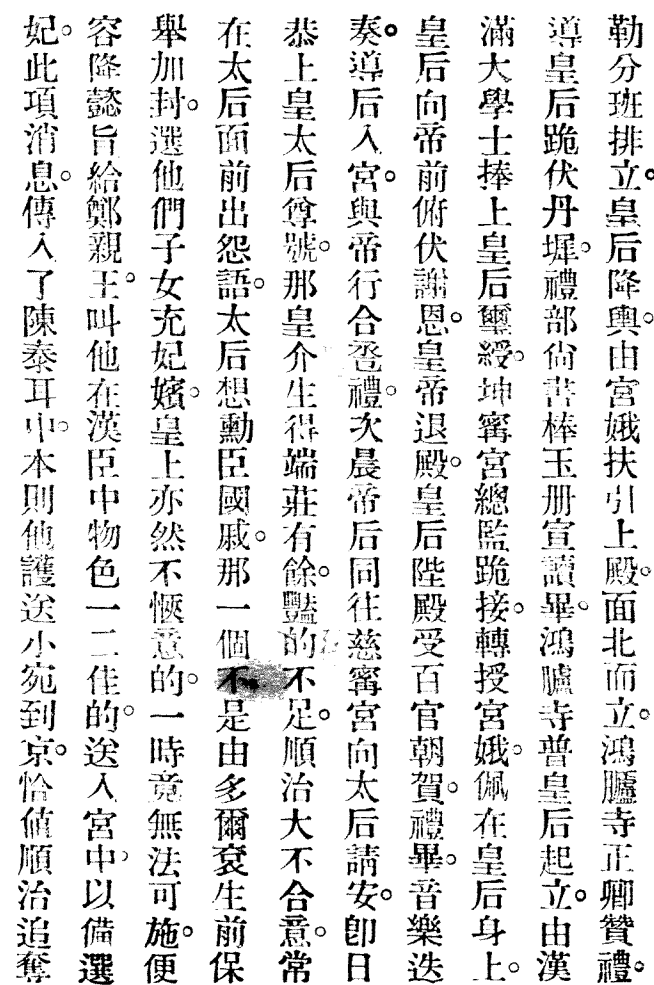 勒分班排立。皇后降輿。由宮娥扶引上殿。面北而立。鴻臚寺正卿贊禮。
導皇后跪伏丹墀。禮部尙書棒玉册宣讀畢。鴻臚寺普皇后起立。由漢
滿大學士捧上皇后璽綬。坤寗宮總監跪接。轉授宮娥。佩在皇后身上。
皇后向帝前俯伏謝恩。皇帝退殿。皇后陛殿受百官朝賀。禮畢。音樂迭
奏。導后入宮。與帝行合巹禮。次晨帝后同往慈寗宮向太后請安。卽日
恭上皇太后尊號。那皇介生得端莊有餘。豔的不足。順治大不合意。常
在太后面前出怨語。太后想勳臣國戚。那一個不是由多爾袞生前保
舉加封。選他們子女充妃嬪。皇上亦然不愜意的。一時竟無法可施。便
容降懿旨給鄭親王。叫他在漢臣中物色一二佳的。送入宮中。以備選
妃。此項消息。傳入了陳泰耳中。本則他護送小宛到京。恰値順治追奪